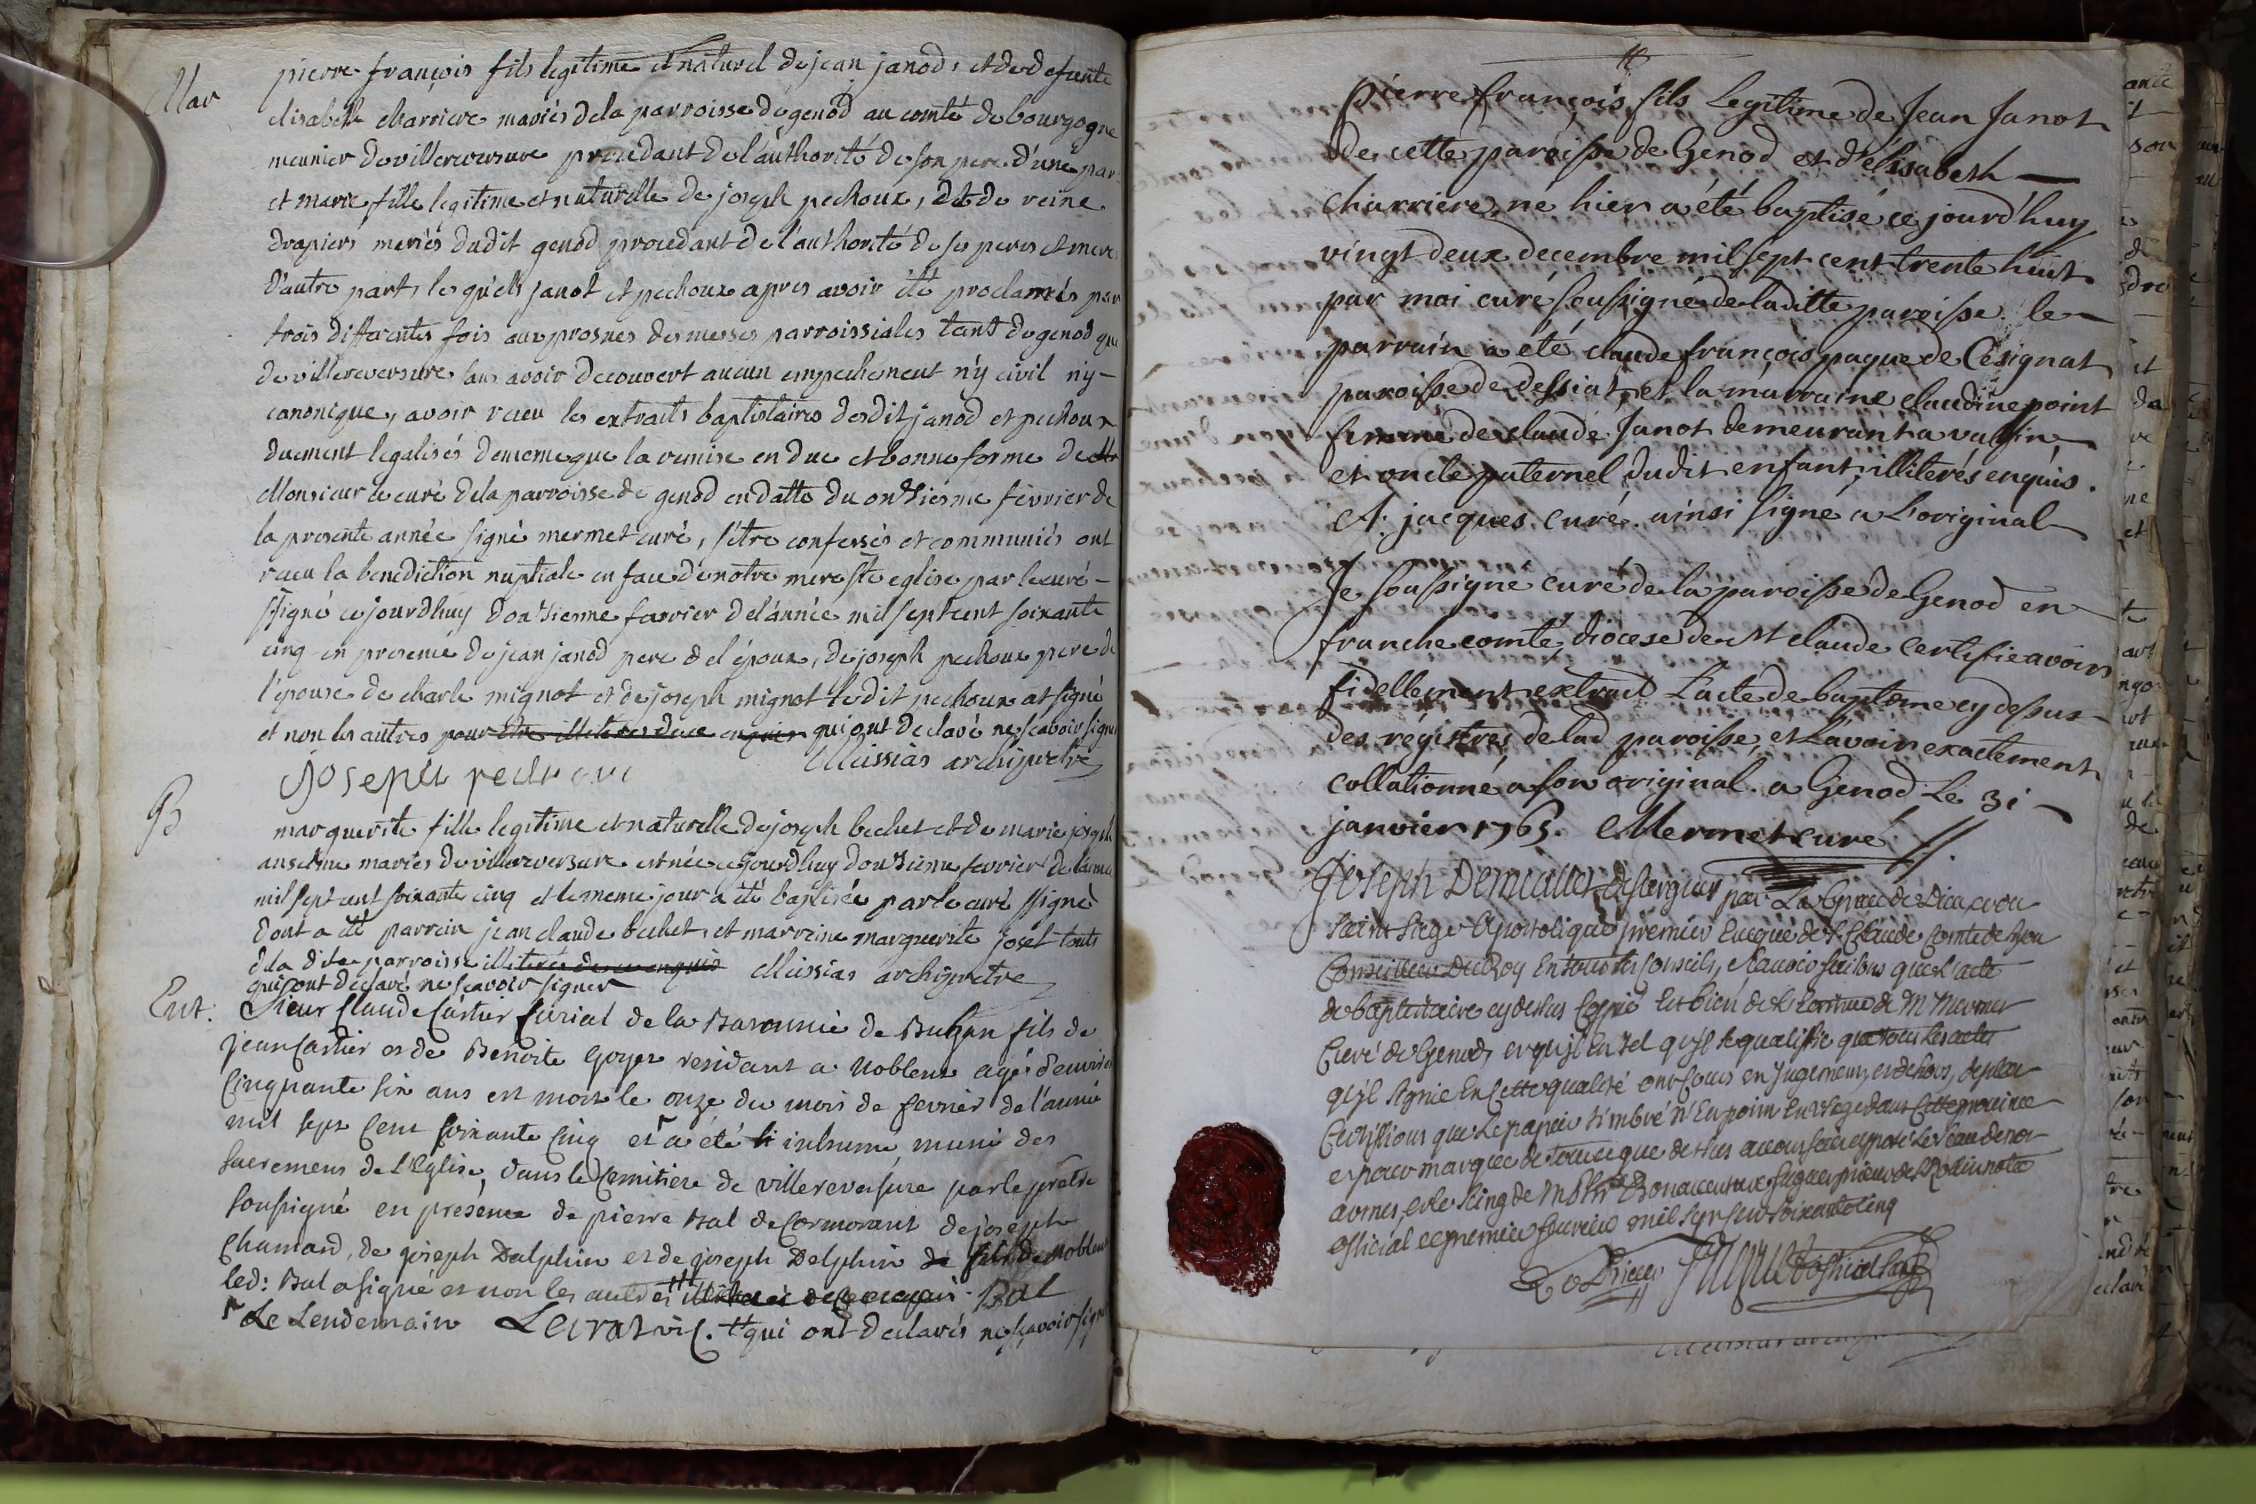 Mar
pierre françois fils legitime et naturel de jean janod, et de defunte
elisabeth charriere mariés dela parroisse de genod au comté de bourgogne
meunier de villereversure procedant de l'authorité de son pere d'une par
et marie fille legitime et naturelle de joseph pechoux, et de reine
drapiers mariés dudit genod procedant de l'authorité de se peres et mere
d'autre part, lesquels janot et pechoux apres avoir été proclamés par
trois differentes fois aux prosnes des messes parroissiales tant de genod que
de villereversure sans avoir decouvert aucun empechement n'y civil ny-
canonique, avoir receu les extraits baptistaires desdit janod et pechoux
duement legalisés dememe que la remise en due et bonne forme de
Monsieur le curé dela parroisse de genod en datte du onzieme fevrier de
la presente année signé mermet curé, s'etre confessés et communiés ont
receu la benediction nuptiale en face de notre mere ste eglise par le curé-
ssigné cejourdhuy douzieme fevrier de l'année mil sept cent soixante
cinq en presence de jean janod pere de l'époux, de joseph pechoux pere de
l'épouse de charle mignot et de joseph mignot ledit pechoux at signé
et non les autres pour etre illiteres de ce enquis qui ont declaré ne scavoir signer
joseph pechoux Messias archipretre
B
marguerite fille legitime et naturelle de joseph bechet et de marie joseph
anselme mariés de villereversure est née cejourdhuy douzieme fevrier de l'année
mil sept cent soixante cinq et le meme jour a été baptisée par le curé ssigné
dont a été parrein jean claude bechet, et marreine marguerite joset touts
dela dite parroisse illiteres de ce enquis Messias archipretre
qui ont declaré ne scavoir signer
Ent:
Sieur Claude Cartier Curial de la Baronnie de Buhan fils de
jean Cartier et de Benoite Goyet residant a Noblens agé d'environ
Cinquante six ans est mort le onze du mois de fevrier de l'année
mil sept Cent soixante Cinq et a été inhumé, muni des
sacremens de L'Eglise, dans le Cemitiere de villereversure par le prêtre
soussigné en présence de pierre Bal de Cormorant de joseph
Chanard, de joseph Dalphin et de joseph Delphin de Noblens
led: Bal a signé et non les autres illiteres de ce enquis. Bal
Le Lendemain Levrat vic. qui ont declarés ne sçavoir signer
pierre françois fils Legitime de Jean Janot
de cette paroisse de Genod et d'élisabeth
charriere, né hier a été baptisé ce jourd'huy
vingt deux decembre mil sept cent trente huit
par moi curé soussigné de laditte paroisse. le
parrain a été claude françois paque de Césignat
paroisse de dessiat, et la marraine claudine point
femme de claude Janot demeurant a valfin
et oncle paternel dudit enfant, illiterés enquis.
A. jacques. curé. ainsi signé a L'original
Je soussigné curé de la paroisse de Genod en
franche comté, diocese de st claude certifie avoir
fidellement extrait L'acte de bapteme cy dessus
des régistres de lad paroisse, et L'avoir exactement
collationné a son original. a Genod Le 31
janvier 1765. Mermet curé
Joseph De Meallet de fargues par La Grace de Dieu, et du
saint siege Apostolique premier Eveque de St Claude Comte de Lyon
Conseiller Du Roy en tous ses Conseils, scavoir faisons que L'acte
de baptistaire cy dessus Copié est bien de M Mermet
Curé de Genod, et qu'il est tel qu'il se qualiffie que tous les actes
qu'il signe En Cette qualité ont cours en jugement et dehors, de plus
Certiffions que Le papier timbré n'est point en usage dans Cette province
en foy de quoy avons fait apposer Le sceau de nos
armes, et le seing de official ce premier fevrier mil sept cent soixante cinq